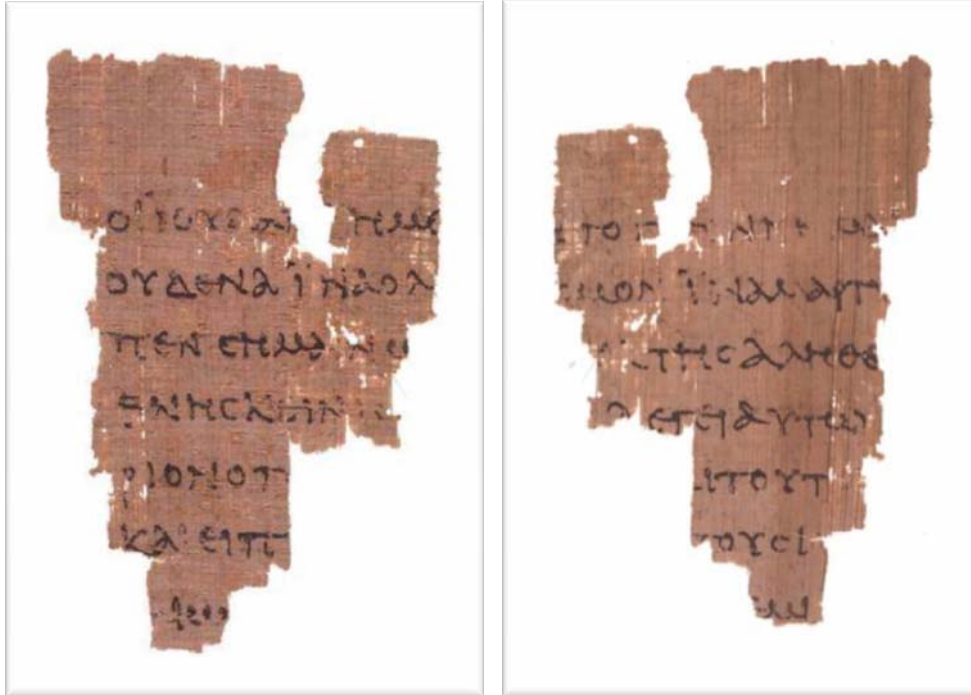 ΟΙ ΪΟΥΔΑΙ ΗΜΕ
ΟΥΔΕΝΑ ΪΝΑ Ο Λ
ΠΕΝ ϹΗΜΑΙΝΩ
ΘΝΗϹΚΕΙΝ
ΡΙΟΝ Ο Π
ΚΑΙ ΕΙΠ
ΤΟ Γ
ϹΜΟΝ ΪΝΑ ΜΑΡΤΥ
ΤΗϹ ΑΛΗΘΕ
ΛΕΓΕΙ ΑΥΤΩ
ΑΙ ΤΟΥΤ
ΤΟΥϹ Ι
ΕΜΙ